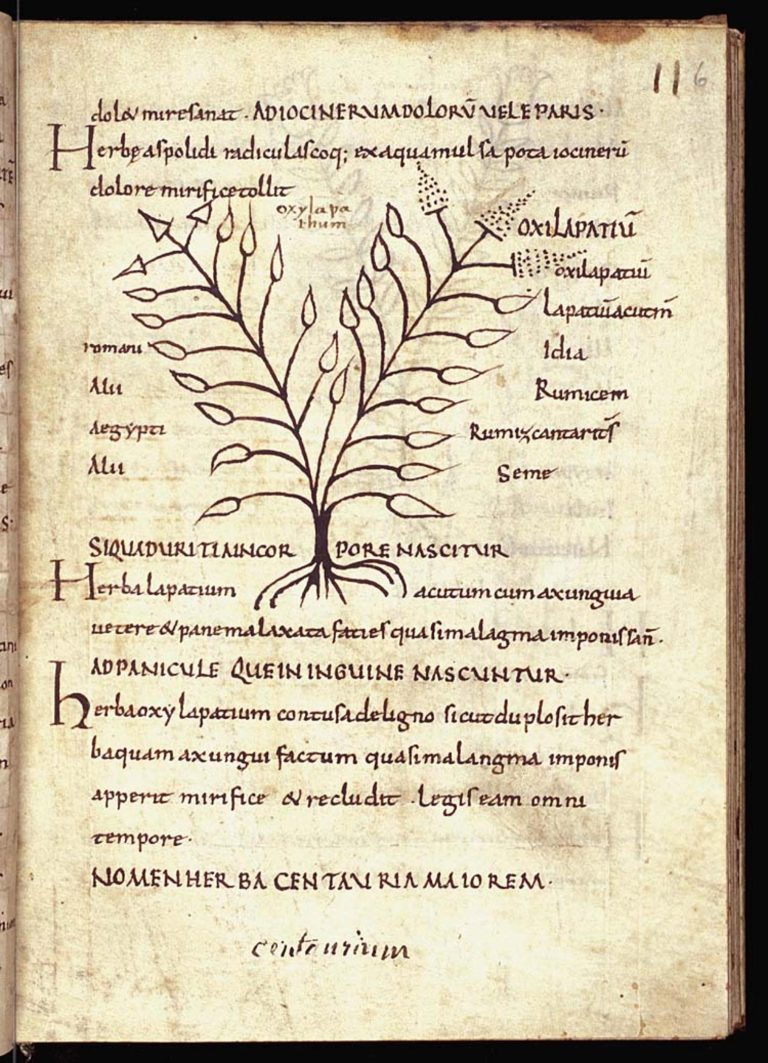 116
dol& mire sanat · AD IOCINERUM DOLORŪ VEL EPARIS ·
Herbę aspolidi radiculas coq; ex aqua mulsa pota iocinerū
dolore mirifice tollit
oxylapa
thum
OXILAPATIŪ
oxilapatiū
Lapatiū acutm̄
romani
Idia
Alii
Rumicem
Aegypti
Rumix cantarits̄
Alii
Seme
SI QUA DURITIA IN CORPORE NASCITUR
Herba lapatium acutum cum axungiia
uetere & pane malaxata facies quasi malagma imponis sañ ·
AD PANICULE QUE IN INGUINE NASCUNTUR ·
herba oxylapatium contusa de ligno sicut duplo sit her
ba quam axungui factum quasi malangma imponis
apperit mirifice & recludit · Legis eam omni
tempore ·
NOMEN HERBA CENTAURIA MAIOREM ·
centaurium